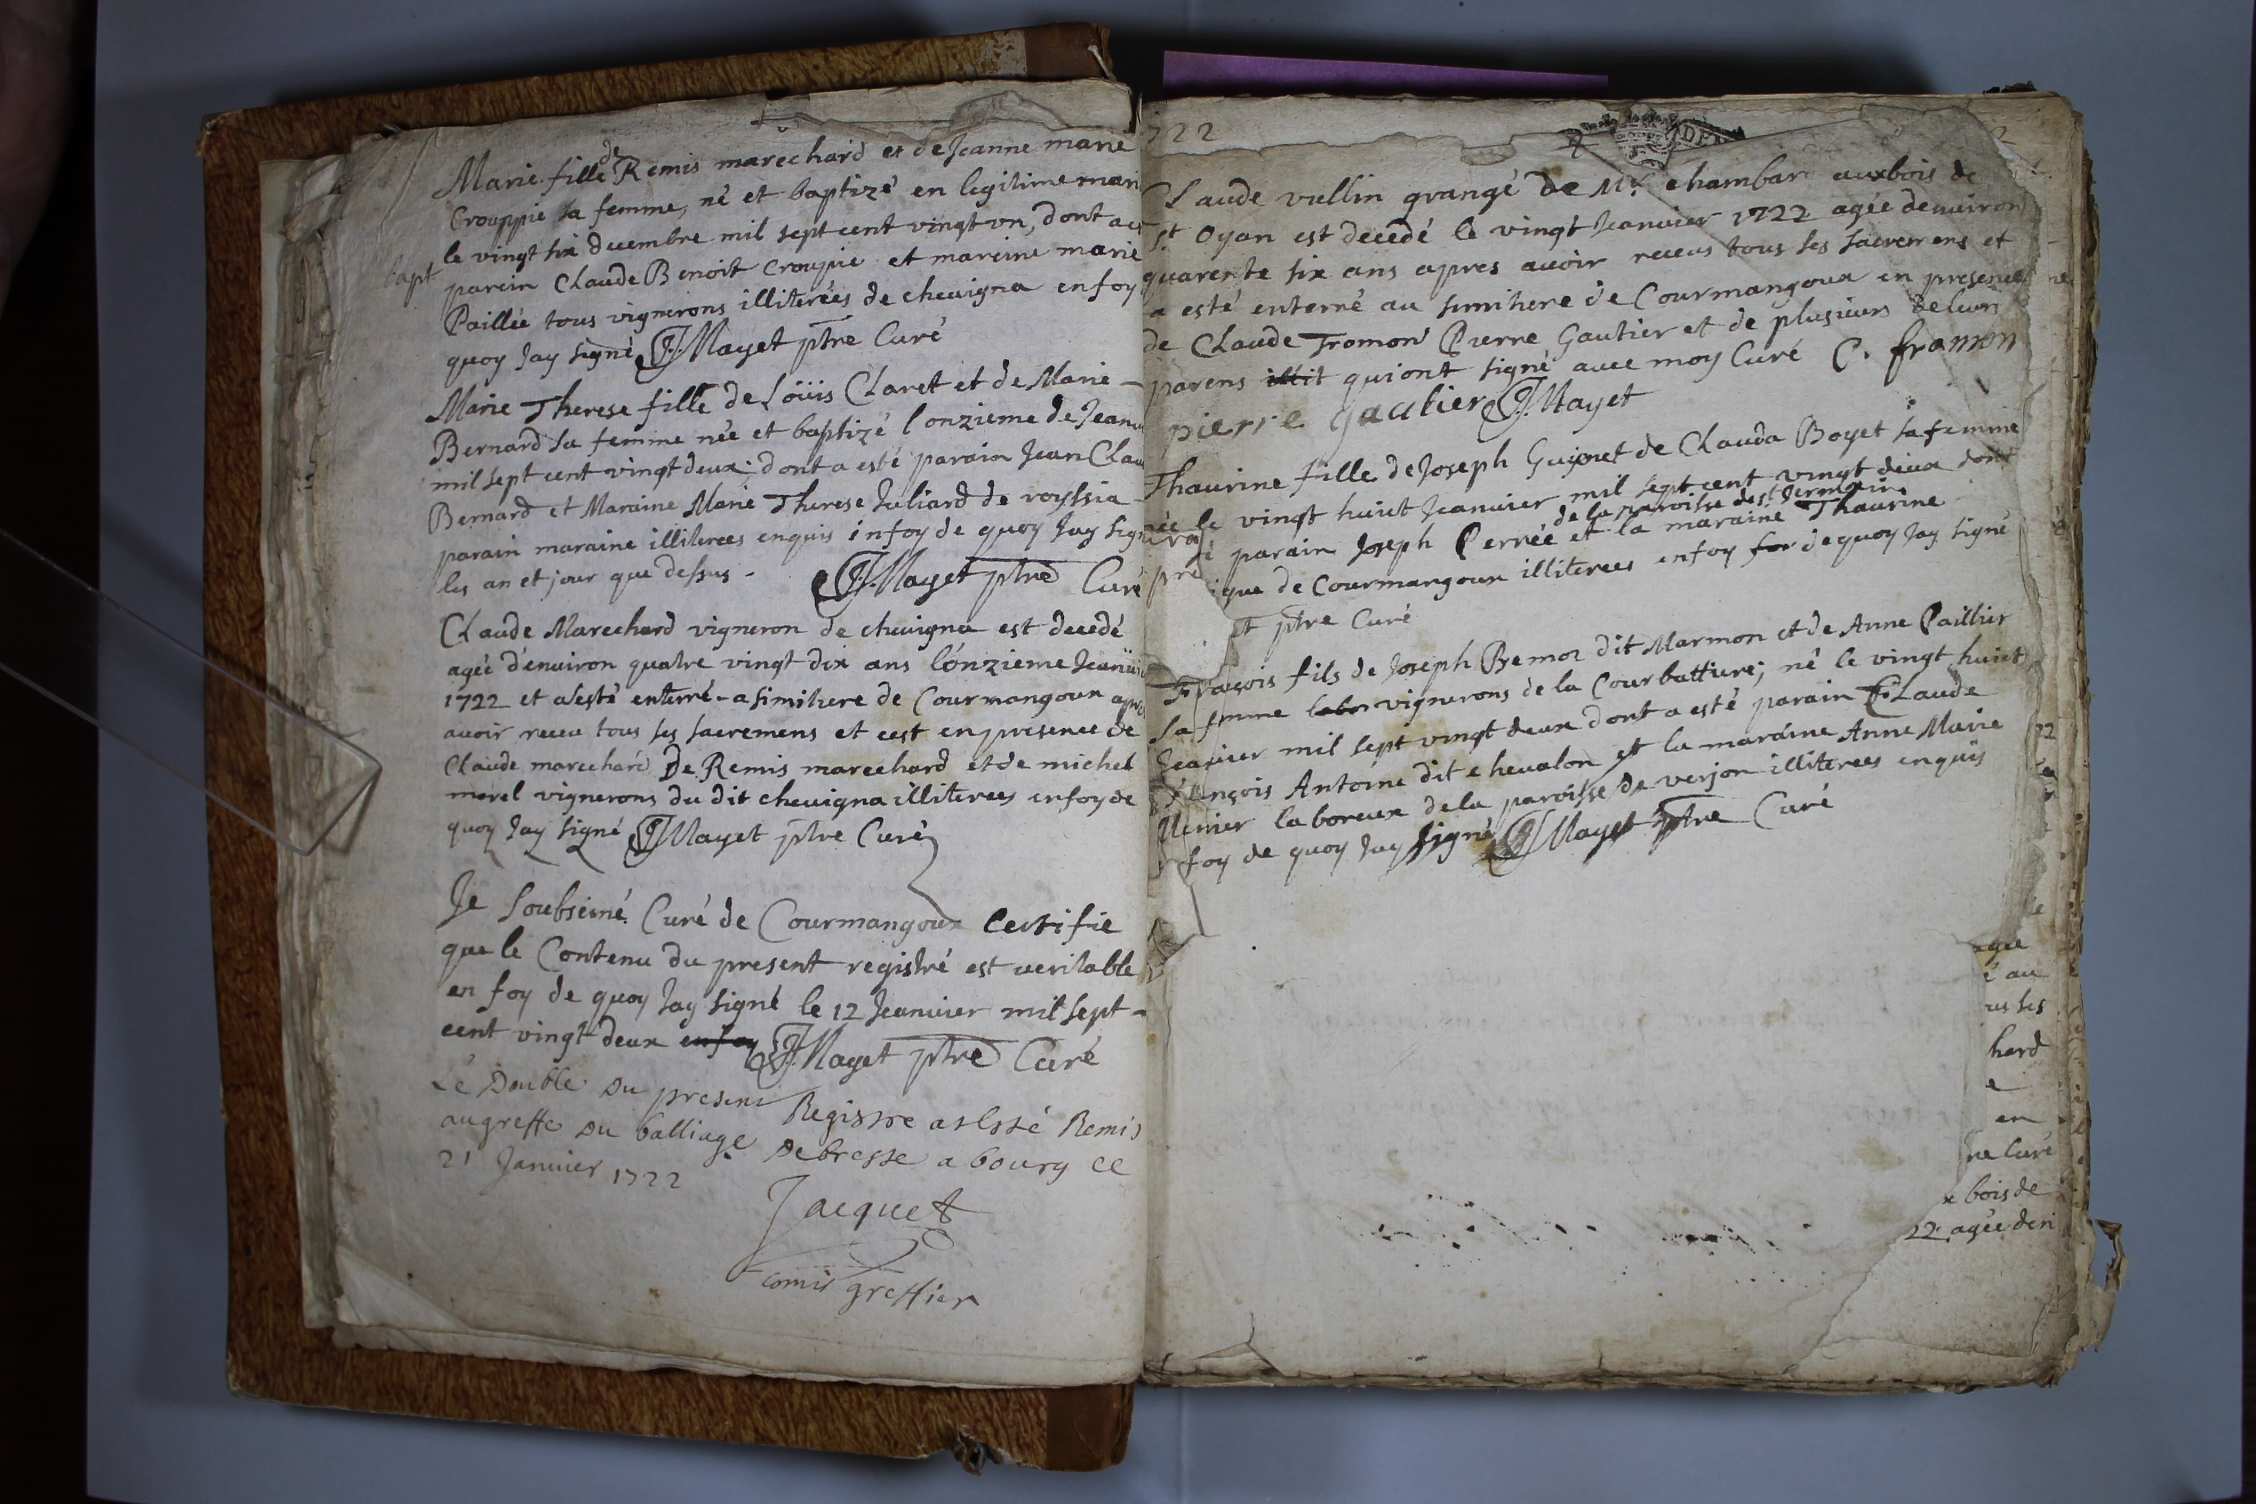 Marie fille de Remis marechard et de Jeanne marie
Crouppie sa femme, né et baptizé en legitime mari
le vingt six decembre mil sept cent vingt vn, dont a es
bapt
parein Claude Benoit Croupie et mareine marie
Paillée tous vignerons illiterées de chevigna enfoy
quoy Jay signé J Mayet ptre Curé
Marie Therese fille de Loüis Claret et de Marie -
Bernard sa femme née et baptizé l onzieme de Jeanu
mil sept cent vingt deux; dont a esté parain Jean Clau
Bernard et Maraine Marie Therese Juliard de royssia -
parain maraine illiterees enquis infoy de quoy Jay sign
les an et jour que dessus - J Mayet ptre Curé
Claude Marechard vigneron de chevigna est decedé
ageé d'environ quatre vingt dix ans l'onzieme Jeanui
1722 et a esté enterré - a simitiere de Courmangoux apres
auoir receu tous ses sacremens et cest enpresence de
Claude marechard De Remis marechard et de michel
morel vignerons du dit chevigna illiterees enfoy de
quoy Jay signé J Mayet ptre Curé
Je soubsiné Curé de Courmangoux Certifie
que le Contenu du present registré est veritable
en foy de quoy Jay signé le 12 Jeanuier mil sept -
cent vingt deux enfoy J Mayet ptre Curé
Le Double Du present Registre a esté Remis
au greffe Du balliage De bresse a bourg ce
21 Janvier 1722
Jacquet
comis greffier
722
Claude vullin grangé de Mr. chambar aux bois de
St Oyan est decedé le vingt Jeanuier 1722 ageé denuiron
quarente six ans apres auoir receus tous ses sacremens et
a esté enterré au simitiere de Courmangoux en presence
de Claude Fromon Pierre Gautier et de plusieurs de leurs
parens illit qui ont signé auec moy Curé C. fromon
pierre gautier J Mayet
Thaurine fille de Joseph Guionet de Clauda Boyet sa femme
née le vingt huict Jeanuier mil sept cent vingt deux dont
de la paroisse de st Jermain
parain Joseph Perrée et la maraine Thaurine
ique de Courmangoux illiterees enfoy for de quoy Jay signé
et ptre Curé
François fils de Joseph Bremoz dit Marmon et de Anne Paillier
sa femme labo vignerons de la Courbatture; né le vingt huict
Jeanuier mil sept vingt deux dont a esté parain Claude
François Antoine dit chevalon et la maraine Anne Marie
Menier laboreux de la paroisse de verjon illiterees enquis
foy de quoy Jay signé J Mayet ptre Curé
gée
é au
us ses
hard
e
en
tre Curé
x bois de
22 ageé den